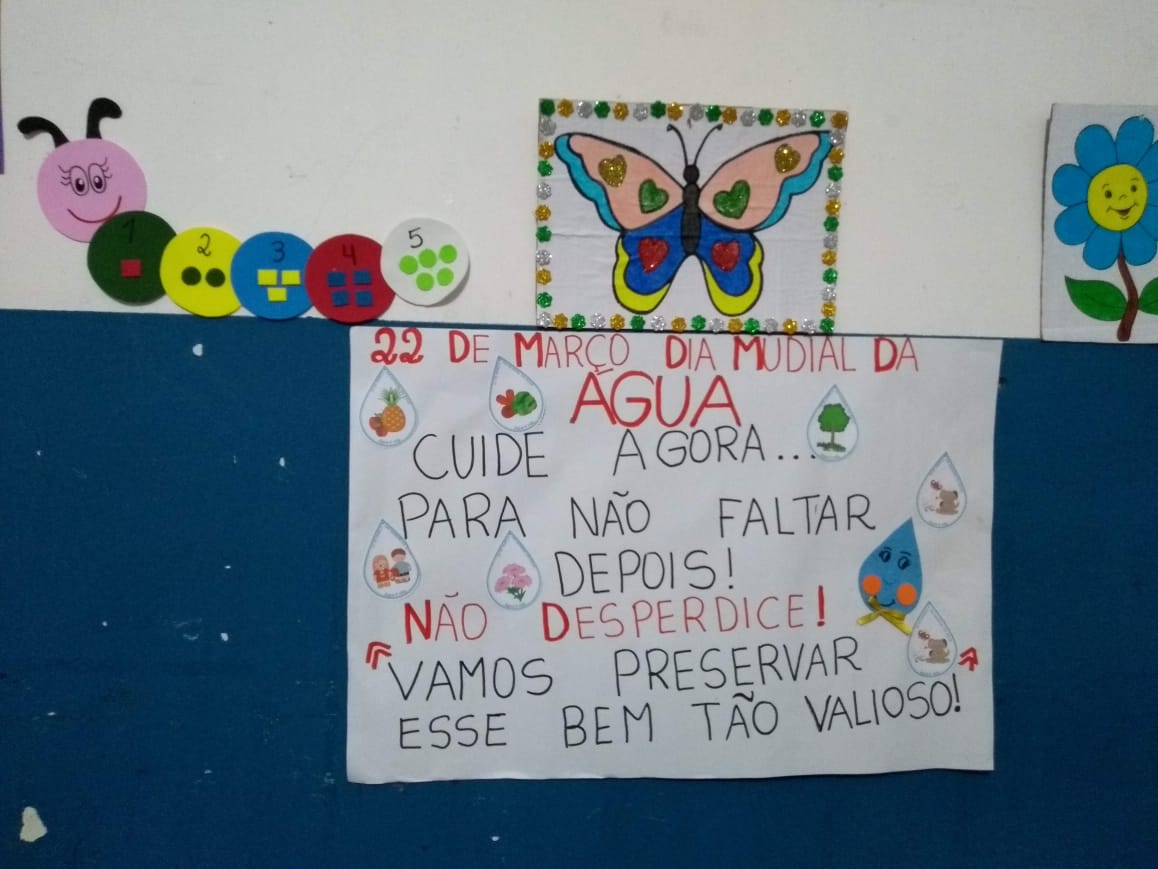 1
2
3
4
5
22 DE MARÇO DIA MUDIAL DA
ÁGUA
CUIDE AGORA...
PARA NÃO FALTAR
DEPOIS!
NÃO DESPERDICE!
"VAMOS PRESERVAR
ESSE BEM TÃO VALIOSO!"